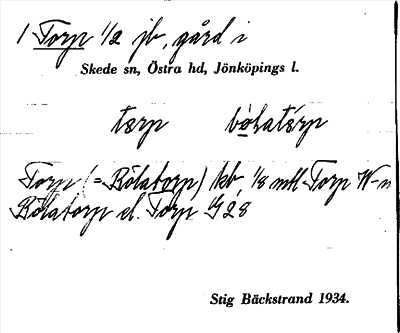 1 Torp 1/2 jb, gård i
Skede sn, Östra hd, Jönköpings l.
Torp (= Bölatorp) kb, 1/8 mtl Torp W-n
Bölatorp el. Torp 28
Stig Bäckstrand 1934.